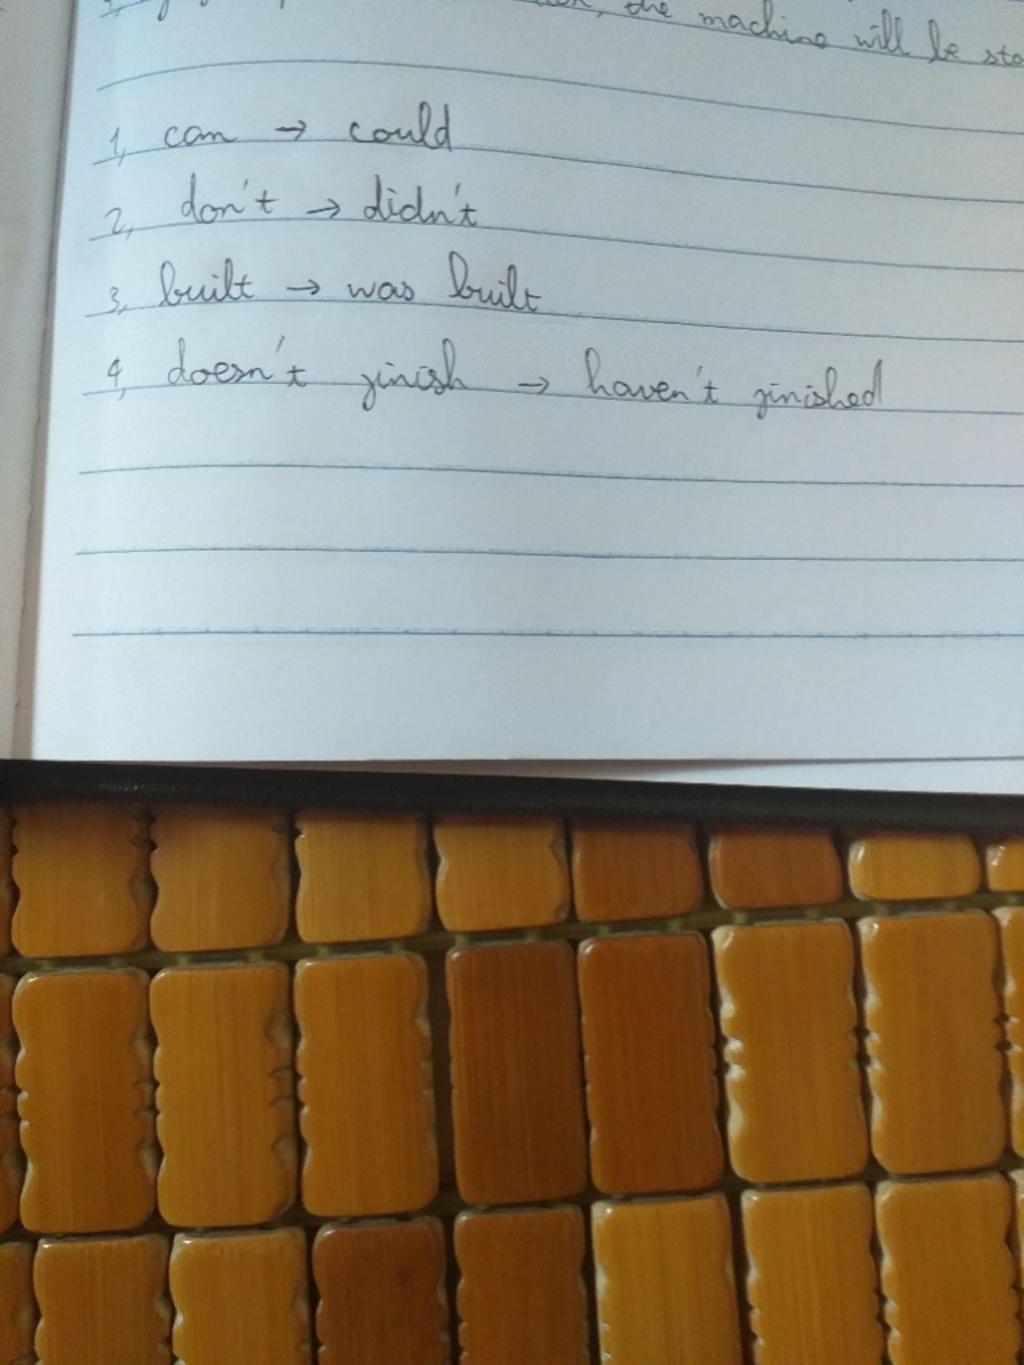 the machine will be sto
1, can → could
2, don't → didn't
3, built → was built
4, doesn't finish → haven't finished